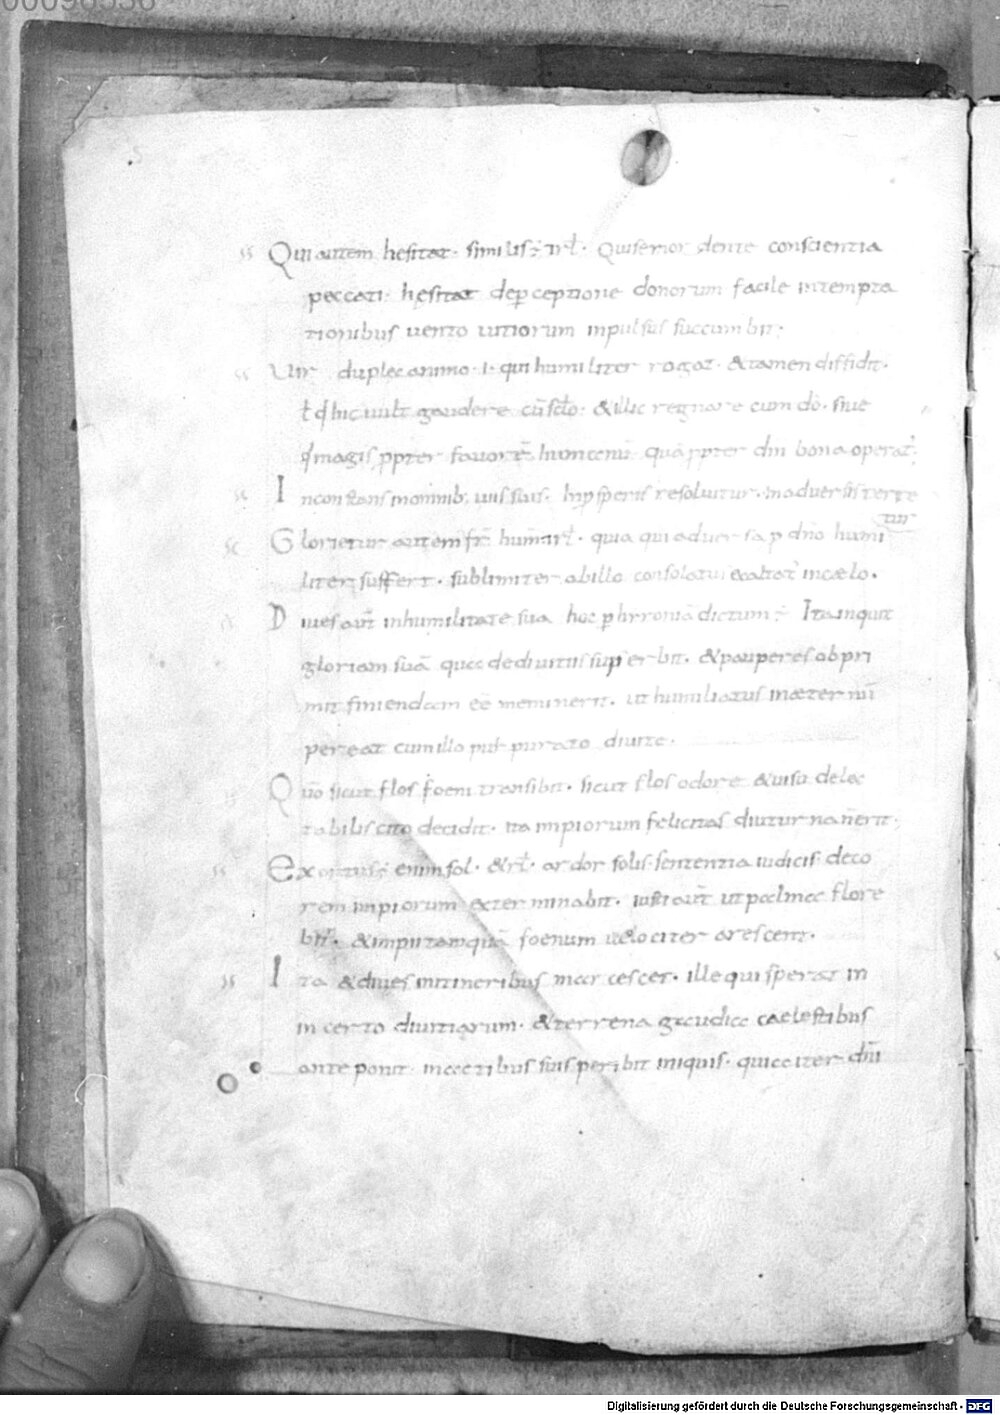 00096536
Qui autem hesitat· similis ÷ rł· Qui se mordente conscientia
peccati· hesitat de p̱ceptione donorum facile in tempta
tionibus uento uitiorum inpulsus succumbit;
Uir duplec animo· i· qui humiliter rogat· & tamen diffidit·
ł q̄ hic uult gaudere cū sc̄lo· & illic regnare cum dō· siue
q̄ magis ꝓpter fauorē humanū quā ꝓpter dm̄ bona operat̄·
Inconstans in omnib; uiis suis· In ꝓsperis resoluitur· In aduersis terre
tur
Glorietur autem fr̄ humił· quia qui aduersa p̱ dn̄o humi
liter suffert· sublimiter ab illo consolatur & exaltat̄ in caelo·
Diues aūt in humilitate sua hoc p̱ hyroniā dictum ÷ Ita inquit
gloriam suā qua de diuitiis superbit· & pauperes obpri
mit finiendam eē meminerit· ut humiliatus in aeternū
pereat cum illo purpurato diuite·
Qūo sicut flos foeni transibit· sicut flos odore & uisu delec
tabilis cito decidit· ita impiorum felicitas diuturna n̄ erit·
Exortus ÷ enim sol· & rł· ardor solis· sententia iudicis· deco
rem impiorum exterminabit· iusti aūt ut palmae flore
bn̄t· & impii tamquā foenum uelociter arescent·
Ita & diues in itineribus marcescet· ille qui sperat in
incerto diuitiarum· & terrena gaudia caelestibus
anteponit· in actibus suis peribit iniquis· quia iter dn̄i
Digitalisierung gefördert durch die Deutsche Forschungsgemeinschaft - DFG